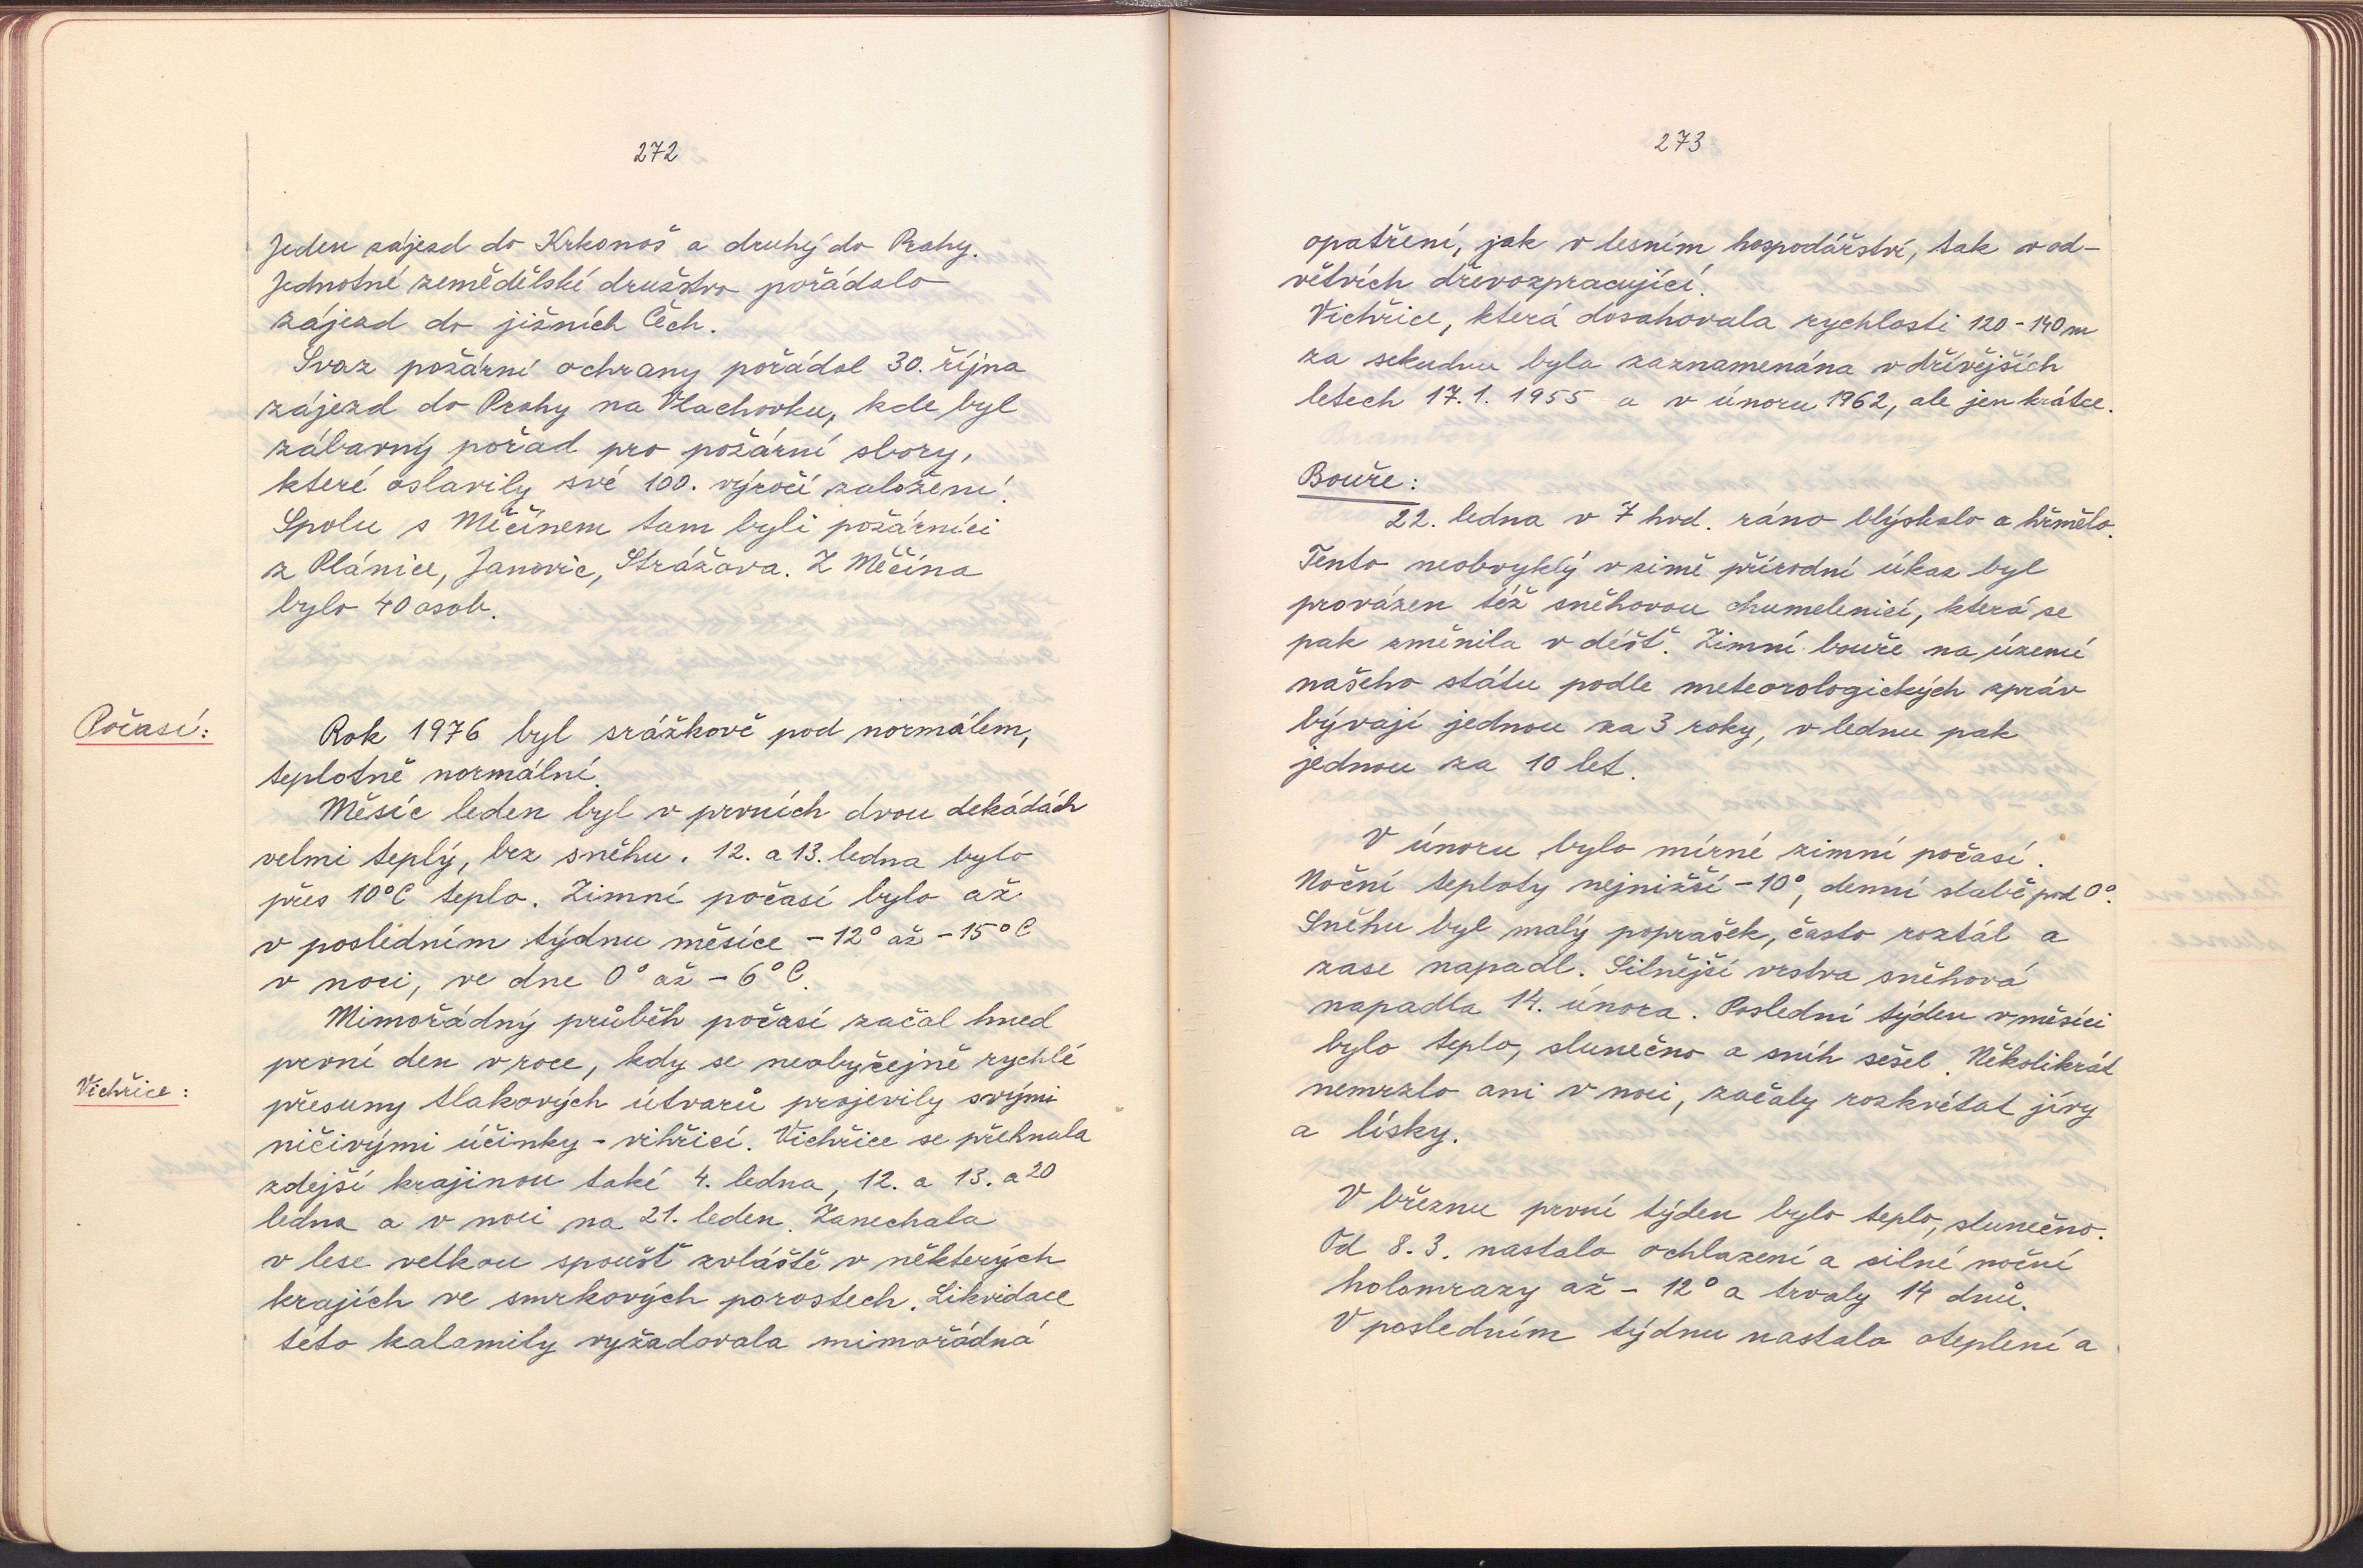 272
Jeden zájezd do Krkonoš a druhý do Prahy.
Jednotné zemědělské družstvo pořádalo
zájezd do jižních Čech.
Svaz požární ochrany pořádal 30. října
zájezd do Prahy na Vlachovku, kde byl
zábavný pořad pro požární sbory,
které oslavily své 100. výročí založení.
Spolu s Měčínem tam byli požárníci
z Plánice, Janovic, Strážova. Z Měčína
bylo 40 osob.
Počasí:
Rok 1976 byl srážkově pod normálem,
teplotně normální.
Měsíc leden byl v prvních dvou dekádách
velmi teplý, bez sněhu. 12. a 13. ledna bylo
přes 10°C teplo. Zimní počasí bylo až
v posledním týdnu měsíce -12° až -15°C
v noci, ve dne 0° až -6°C.
Mimořádný průběh počasí začal hned
první den v roce, kdy se neobyčejně rychlé
Vichřice:
přesuny tlakových útvarů projevily svými
ničivými účinky - vihřicí. Vichřice se přehnala
zdejší krajinou také 4. ledna, 12. a 13. a 20
ledna a v noci na 21. leden. Zanechala
v lese velkou spoušť zvláště v některých
krajích ve smrkových porostech. Likvidace
této kalamity vyžadovala mimořádná
273
opatření, jak v lesním hospodářství, tak v od-
větvích dřevozpracující.
Vichřice, která dosahovala rychlosti 120-140 m
za sekudnu byla zaznamenána v dřívějších
letech 17.1. 1955 a v únoru 1962, ale jen krátce.
Bouře:
22. ledna v 7 hod. ráno blýskalo a hřmělo.
Tento neobvyklý v zimě přírodní úkaz byl
provázen též sněhovou chumelenicí, která se
pak změnila v déšť. Zimní bouře na území
našeho státu podle meteorologických zpráv
bývají jednou za 3 roky, v lednu pak
jednou za 10 let.
V únoru bylo mírné zimní počasí.
Noční teploty nejnižší -10°, denní slabě pod 0°.
Sněhu byl malý poprašek, často roztál a
zase napadl. Silnější vrstva sněhová
napadla 14. února. Poslední týden v měsíci
bylo teplo, slunečno a sníh sešel. Několikrát
nemrzlo ani v noci, začaly rozkvétat jívy
a lísky.
V březnu první týden bylo teplo, slunečno.
Od 8.3. nastalo ochlazení a silné noční
holomrazy až -12° a trvaly 14 dnů.
V posledním týdnu nastalo oteplení a